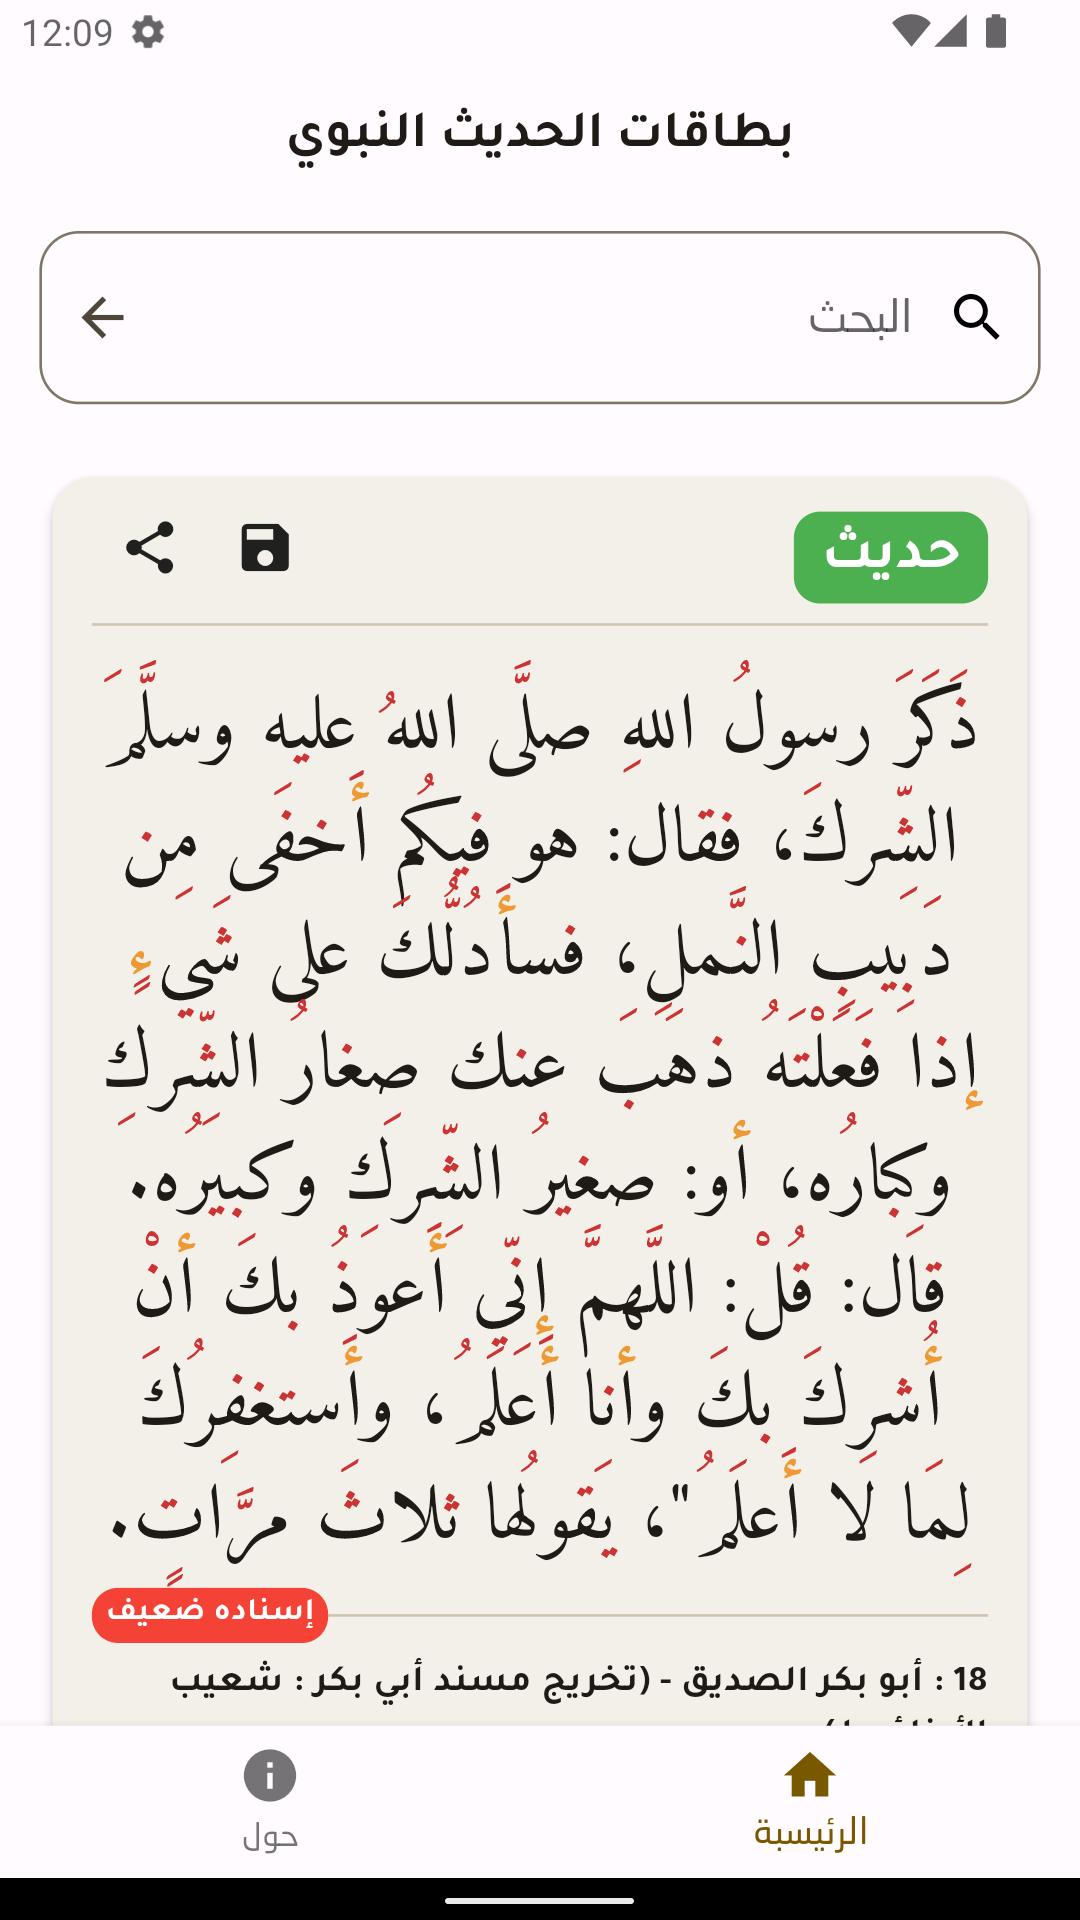 12:09
بطاقات الحديث النبوي
البحث
حديث
ذَكَرَ رسولُ اللهِ صلَّى اللهُ عليه وسلَّمَ
الشّركَ، فقال: هو فيكُم أَخفَى مِن
دَبِيبِ النَّملِ، فسأَدُلُّكَ على شيءٍ
إذا فَعَلْتَه ذهب عنك صغارُ الشّركِ
وكبارُه، أو: صغيرُ الشّركَ وكبيرُه.
قال: قُلْ: اللَّهمَّ إنّي أَعوذُ بكَ أنْ
أُشركَ بكَ وأنا أَعلَمُ، وأَستغفرُكَ
لِمَا لَا أَعلَمُ"، يَقولُها ثلاثَ مرَّاتٍ.
إسناده ضعيف
18 : أبو بكر الصديق - (تخريج مسند أبي بكر : شعيب
الرئيسية
حول